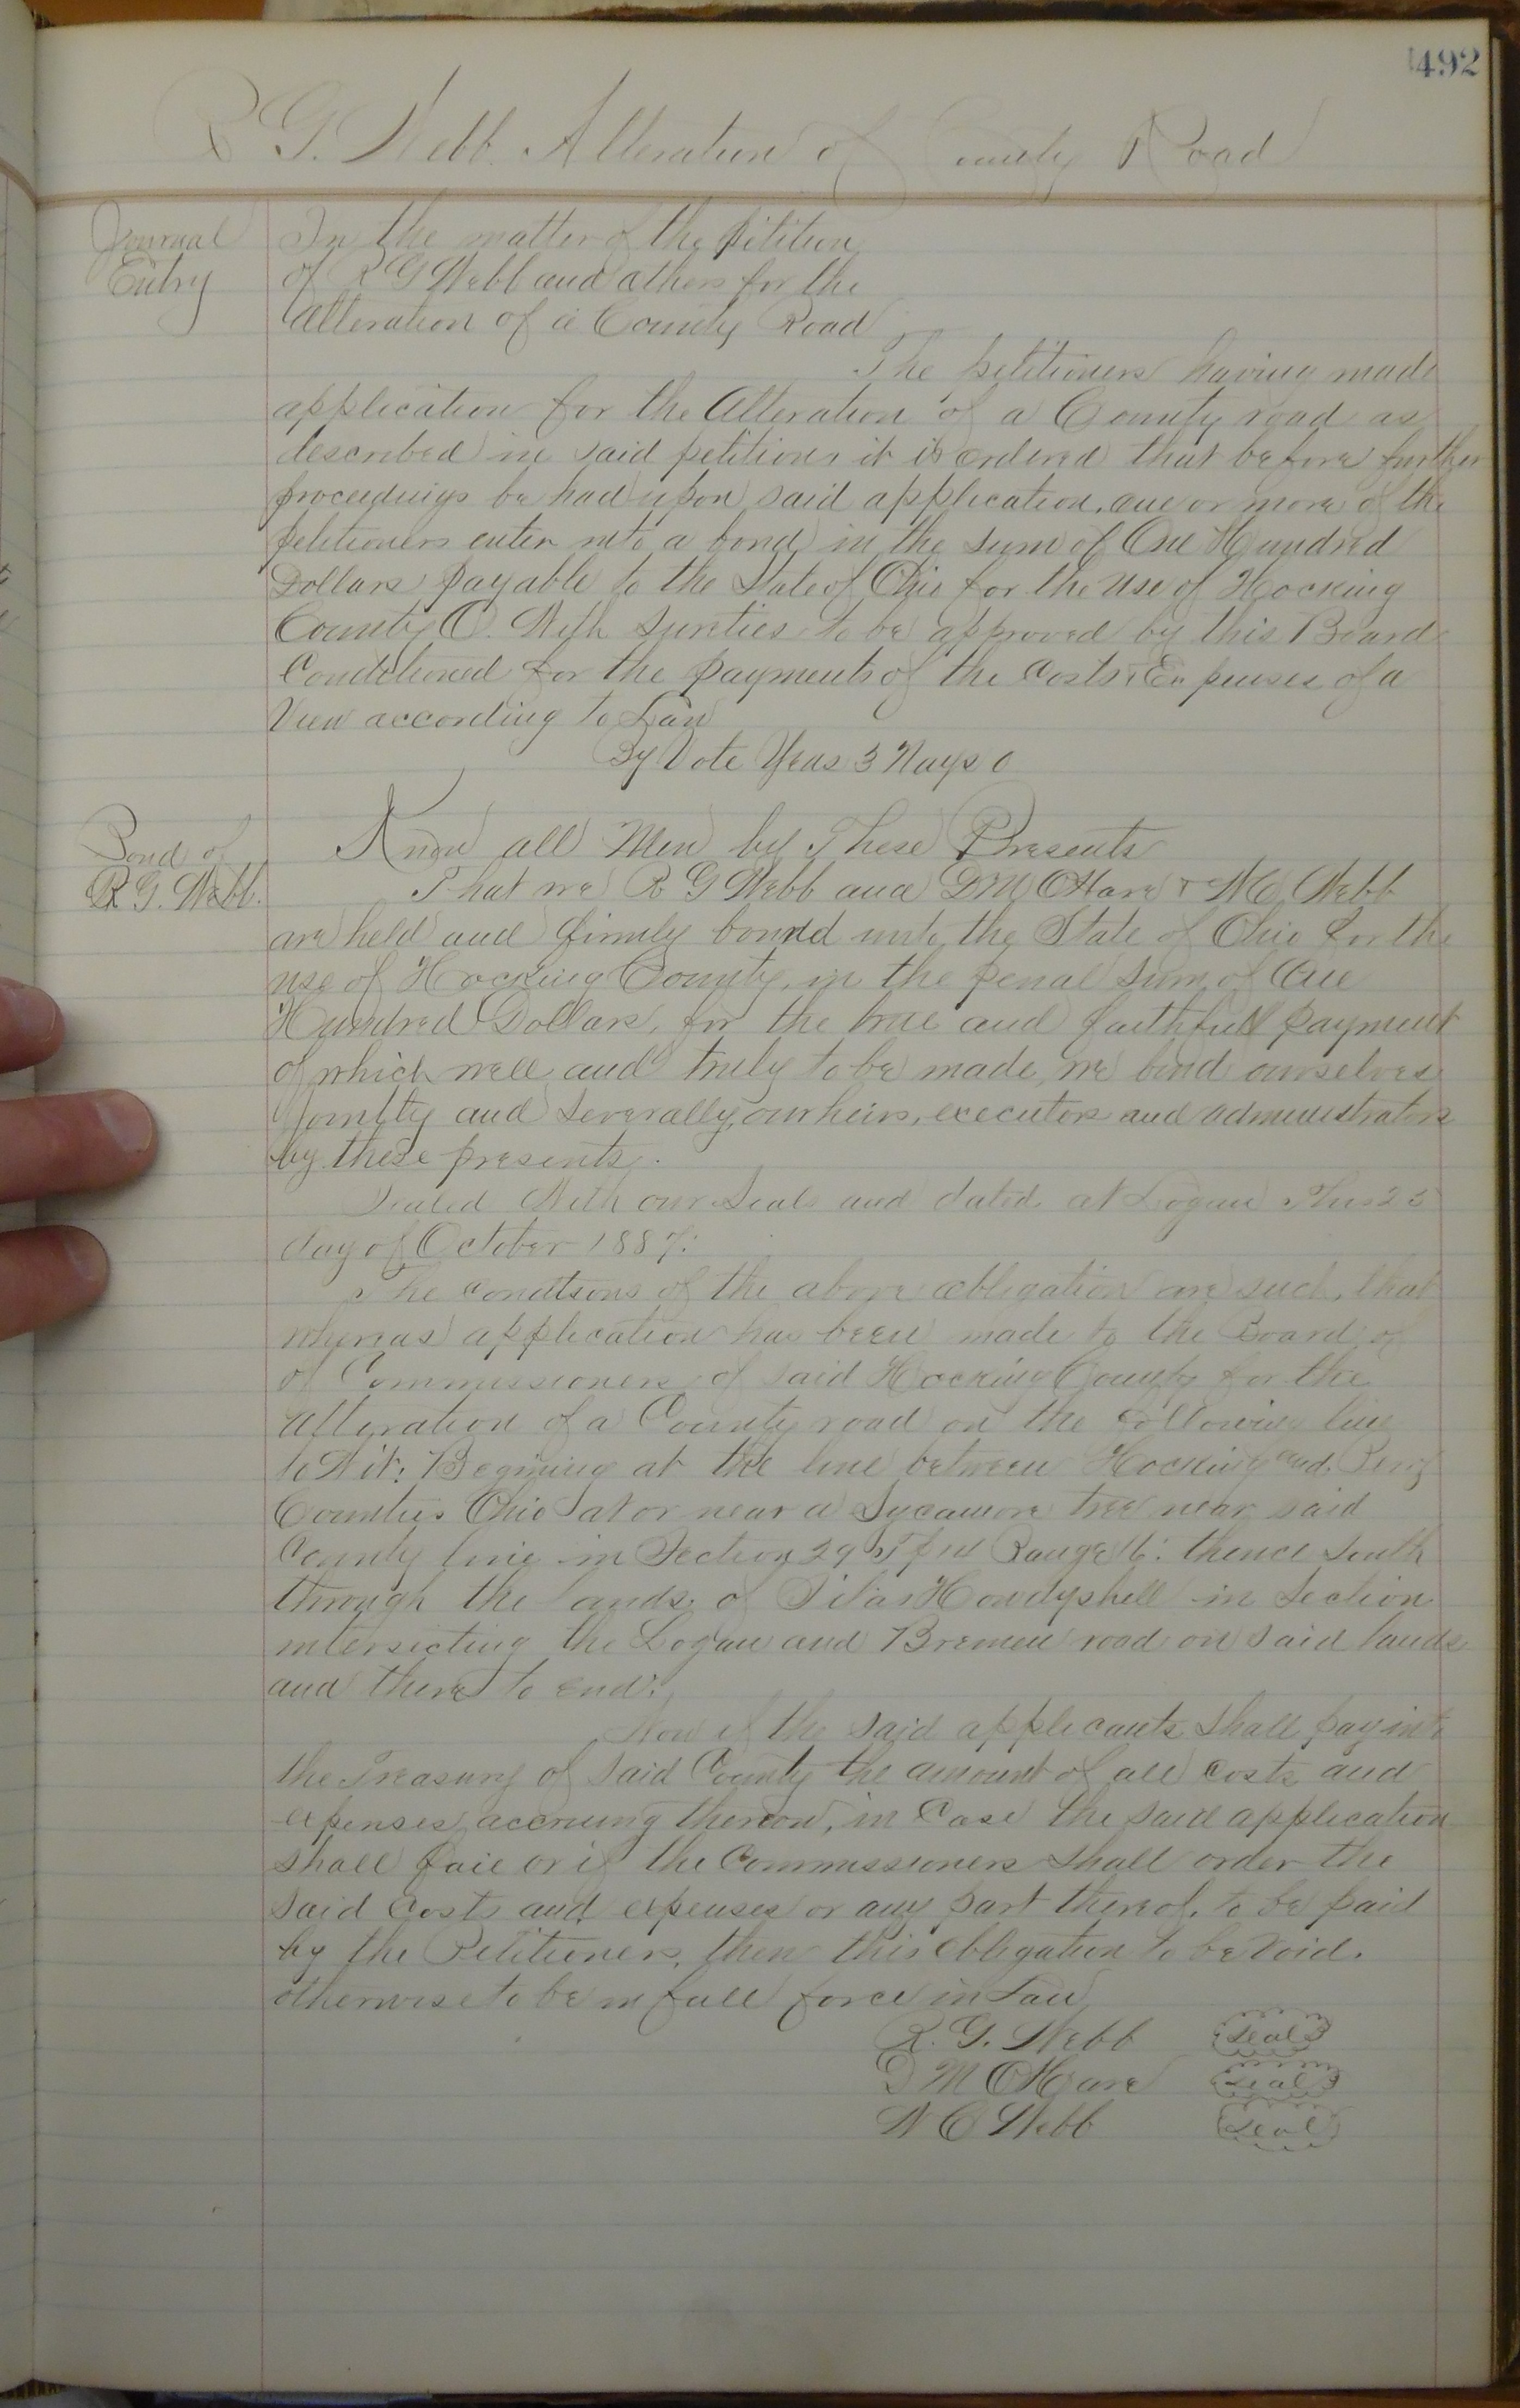 492
R G. Webb. Alteration of County Road
Journal
Entry
In the matter of the petition
of R G Webb and others for the
Alteration of a County Road
The petitioners having made
application for the Alteration of a County road as
described in said petition it is ordered that before further
proceedings be had upon said application, one or more of the
petitioners enter into a bond in the sum of One Hundred
Dollars payable to the State of Ohio for the use of Hocking
County O. With Sureties to be approved by this Board
Conditioned for the payments of the Costs & Expenses of a
View according to Law
By Vote Yeas 3 Nays 0
Bond of
R G. Webb.
Know all Men by These Presents
That we R G Webb and D M OHare & N C Webb
are held and firmly bound unto the State of Ohio for the
use of Hocking County, in the penal sum of One
Hundred Dollars, for the true and faithfull payment
of which well and truly to be made, we bind ourselves
Jointly and Severally, our heirs, executors and administrators
by these presents.
Sealed With our Seals and dated at Logan This 25
day of October 1887.
The conditions of the above obligation are such, that
whereas application has been made to the Board of
of Commissioners of said Hocking County for the
Alteration of a County road on the following line
to Wit: Begining at the line between Hocking and Perry
Counties Ohio at or near a Sycamore tree near said
County line in Section 29 Tp 14 Range 16: thence South
through the lands of Silas Howdyshell in Section
intersecting the Logan and Bremen road on said lands
and there to end:
Now if the said applicants shall pay into
the Treasury of said County the amount of all costs and
expenses accruing thereon, in Case the said application
shall fail or if the Commissioners shall order the
said Costs and expenses or any part thereof, to be paid
by the Petitioners, then this obligation to be void.
otherwise to be in full force in Law
R. G. Webb seal
D M OHare seal
N C Webb seal